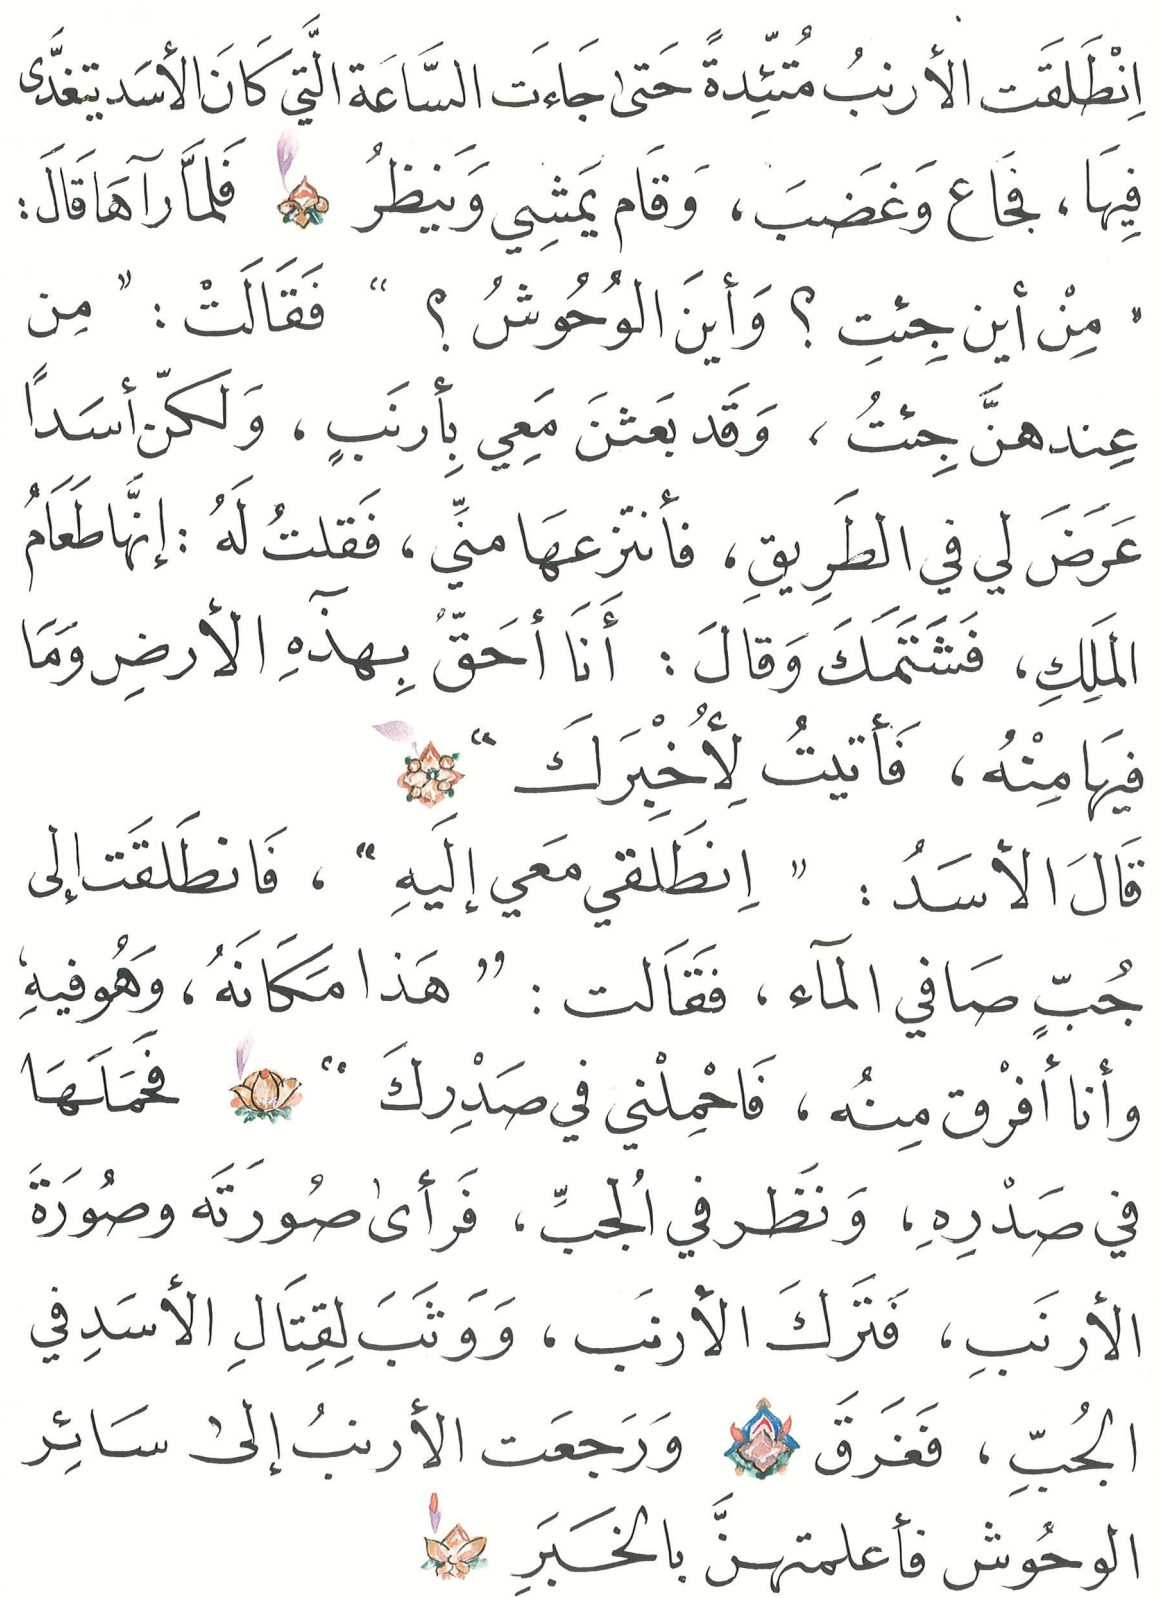 اِنْطَلَقَت الأرنبُ مُتئِّدةً حَتىٰ جَاءَت السَّاعَة الَّتي كَانَ الأسَد يتغدَّى
فِيهَا، فجَاع وَغضبَ، وَقام يَمشِي وَينظرُ فَلمَّا رآهَا قَالَ:
" مِنْ أين جِئتِ ؟ وَأينَ الوُحُوشُ ؟ " فَقَالَتْ : " مِن
عِند هنَّ جِئتُ ، وَقَد بَعَثنَ مَعِي بِأرنَبٍ ، وَلَكنّ أسَداً
عَرَضَ لي في الطَرِيقِ، فأنتزعهَا منِّي ، فَقلتُ لَهُ : إنَّهَا طَعَامُ
المَلِكِ، فَشَتَمَكَ وَقالَ : أَنَا أحَقّ بِهذَهِ الأرضِ وَمَا
فيهَا مِنْهُ ، فَأتيتُ لِأُخْبِرَكَ "
قَالَ الأسَدُ : " اِنطَلقي مَعَي إلَيهِ " ، فَانطَلقَت إلى
جُبٍّ صَافي المآء ، فقَاَلت : " هَذا مَكَانَهُ ، وَهُو فيهِ
وأنا أفرْق مِنهُ ، فَاحْمِلْني في صَدْرِكَ " فحَمَلَهَا
في صَدْرِهِ، وَنَظَر في الُجبِّ ، فَرأىٰ صُورَتَه وصُورَةَ
الأرنَبِ ، فَتَركَ الأرنَب ، وَوَثَبَ لِقِتَالِ الأسَدِ في
الجُبِّ ، فَغَرَقَ وَرَجعَت الأرنبُ إلىٰ سَائِر
الوحُوش فأعلمتهنَّ بالخَبَرِ